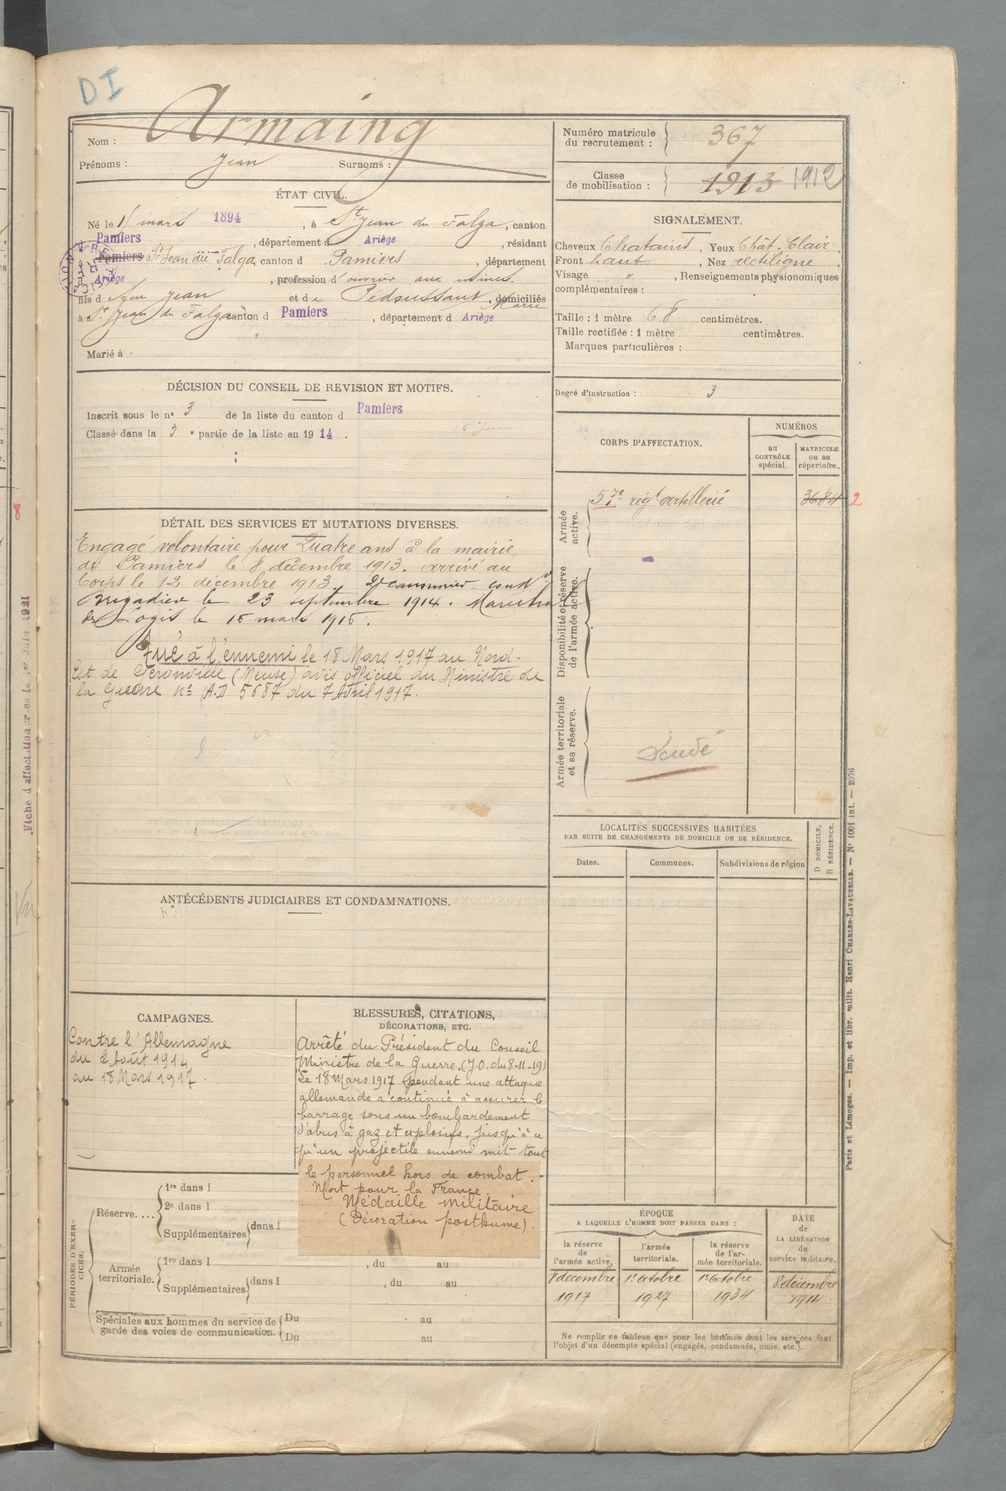 DI
Armaing
Nom :
Prénoms : Jean Surnoms :
Numéro matricule du recrutement : 367
Classe de mobilisation : 1913 1912
ÉTAT CIVIL.
Né le mars 1894, à St Jean du Falga, canton
Pamiers, département d Ariège, résidant
à Pamiers St Jean du Falga, canton d Pamiers, département
Ariège, profession d'ouvrier aux usines.
fils d feu Jean et de Pédoussaut Marie, domiciliés
à St Jean du Falga canton d Pamiers, département d Ariège
Marié à
SIGNALEMENT.
Cheveux Chatains, Yeux Chât. Clair
Front haut, Nez rectiligne
Visage " , Renseignements physionomiques
complémentaires :
Taille : 1 mètre 68 centimètres.
Taille rectifiée : 1 mètre centimètres.
Marques particulières :
Degré d'instruction : 3
DÉCISION DU CONSEIL DE REVISION ET MOTIFS.
Inscrit sous le n° 3 de la liste du canton d Pamiers
Classé dans la 3e partie de la liste en 1914.
CORPS D'AFFECTATION.
NUMÉROS
AU CONTRÔLE spécial.
MATRICULE OU AU répertoire.
Armée active.
57e régt artillerie 3684 2
Disponibilité et réserve de l'armée active.
Armée territoriale et sa réserve.
DÉTAIL DES SERVICES ET MUTATIONS DIVERSES.
Engagé volontaire pour Quatre ans à la mairie
de Pamiers le 8 décembre 1913. arrivé au
Corps le 12 décembre 1913. 2e canonnier condr
Brigadier le 23 septembre 1914. Maréchal
des Logis le 15 mars 1916.
Tué à l'ennemi le 18 Mars 1917 au Nord-
Est de Géronville (Meuse) avis officiel du Ministre de
la Guerre n° A.D 5687 du 7 Avril 1917.
LOCALITÉS SUCCESSIVES HABITÉES
PAR SUITE DE CHANGEMENTS DE DOMICILE OU DE RÉSIDENCE.
Dates.
Communes.
Subdivisions de région
D DOMICILE.
R RÉSIDENCE.
ANTÉCÉDENTS JUDICIAIRES ET CONDAMNATIONS.
CAMPAGNES.
Contre l'Allemagne
du 2 Août 1914
au 18 Mars 1917.
BLESSURES, CITATIONS,
DÉCORATIONS, ETC.
Arrêté du Président du Conseil
Ministre de la Guerre. (J.O. du 8-11-19)
Le 18 Mars 1917 pendant une attaque
allemande a continué à assurer le
barrage sous un bombardement
d'obus à gaz et explosifs, jusqu'à ce
qu'un projectile ennemi mit tout
le personnel hors de combat.
Mort pour la France.
Médaille militaire
(Décoration posthume).
PÉRIODES D'EXERCICES.
Réserve....
1re dans l
2e dans l
Supplémentaires dans l
Armée territoriale.
1re dans l , du au
Supplémentaires dans l , du au
Spéciales aux hommes du service de garde des voies de communication.
Du au
Du au
ÉPOQUE
A LAQUELLE L'HOMME DOIT PASSER DANS :
la réserve de l'armée active.
l'armée territoriale.
la réserve de l'armée territoriale.
DATE de LA LIBÉRATION du service militaire.
8 décembre 1917
1er octobre 1927
1er octobre 1934
8 décembre
Ne remplir ce tableau que pour les hommes dont les services font
l'objet d'un décompte spécial (engagés, condamnés, omis, etc.).
Paris et Limoges. — Imp. et libr. milit. Henri CHARLES-LAVAUZELLE. — N° 1001 int. —